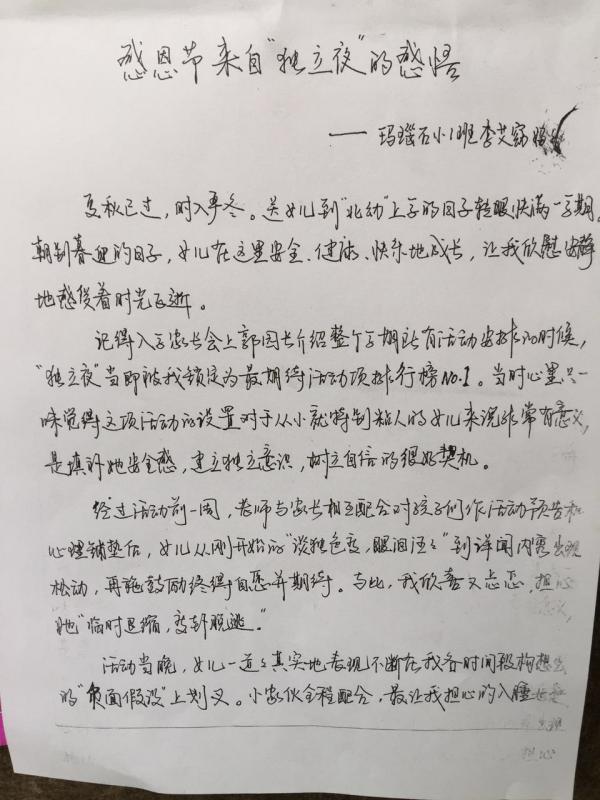 感恩节来自“独立夜”的感悟
——玛瑙石小1班李艾窈妈妈
夏秋已过,时入严冬。送女儿到“北幼”上学的日子转眼快满一学期。
朝别暮迎的日子,女儿在这里安全、健康、快乐地成长,让我欣慰安静
地感受着时光飞逝。
记得入学家长会上郭园长介绍整个学期所有活动安排的时候,
“独立夜”当即被我锁定为最期待活动项排行榜No.1。当时心里只一
味觉得这项活动的设置对于从小就特别粘人的女儿来说非常有意义,
是填补她安全感,建立独立意识,树立自信的很好契机。
经过活动前一周,老师与家长相互配合对孩子们作活动预告和
心理铺垫后,女儿从刚开始的“谈独色变,眼泪汪々”到详闻内容出现
松动,再施鼓励终得自愿并期待。与此,我欣喜又忐忑,担心
她“临时退缩,变卦脱逃。”
活动当晚,女儿一道々真实地表现不断在我各时间段构想出
的“负面假设”上划叉。小家伙全程配合,最让我担心的入睡
担心